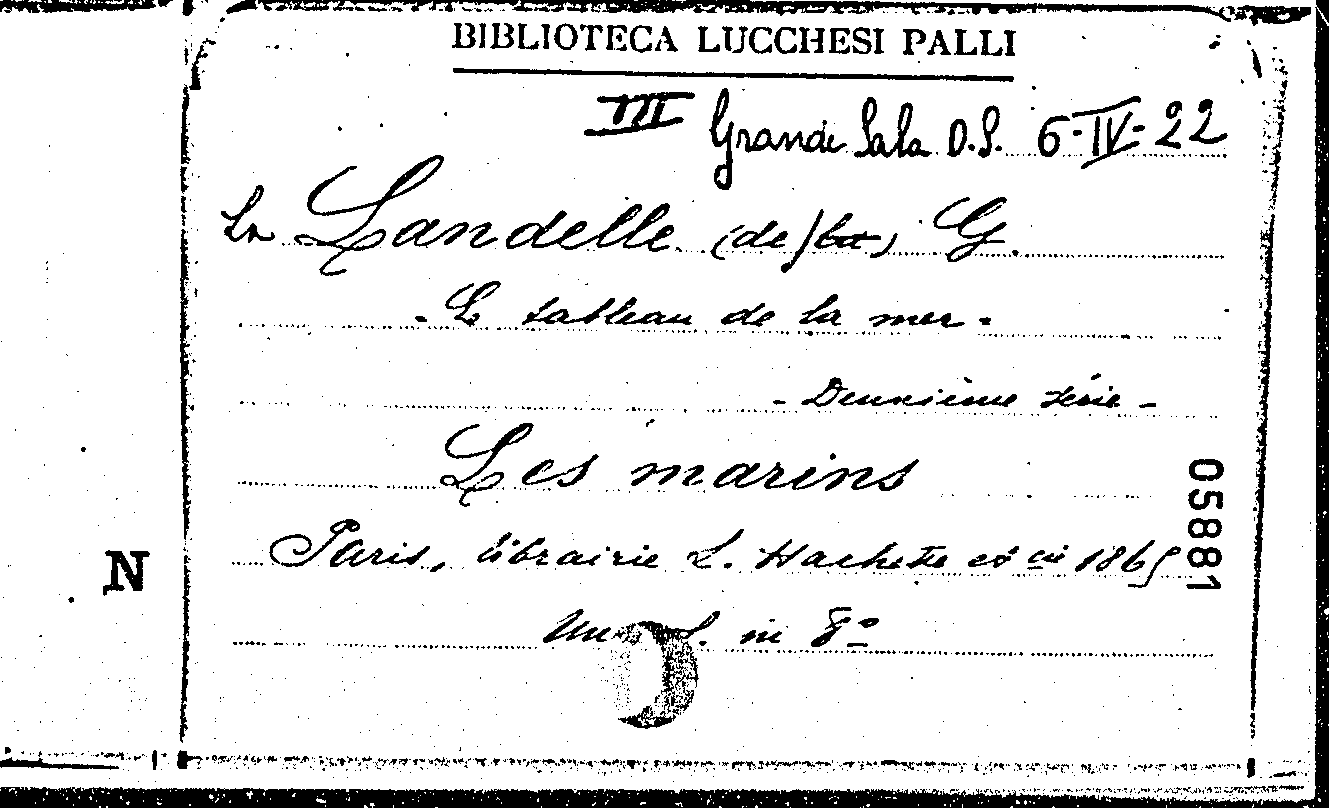 BIBLIOTECA LUCCHESI PALLI
III Grande Sala D.S. 6-IV-22
La Landelle (de) G.
- Le tableau de la mer -
- Deuxième série -
Les marins
Paris, librairie L. Hachette et Cie 1865
Un in 8º
05881
N